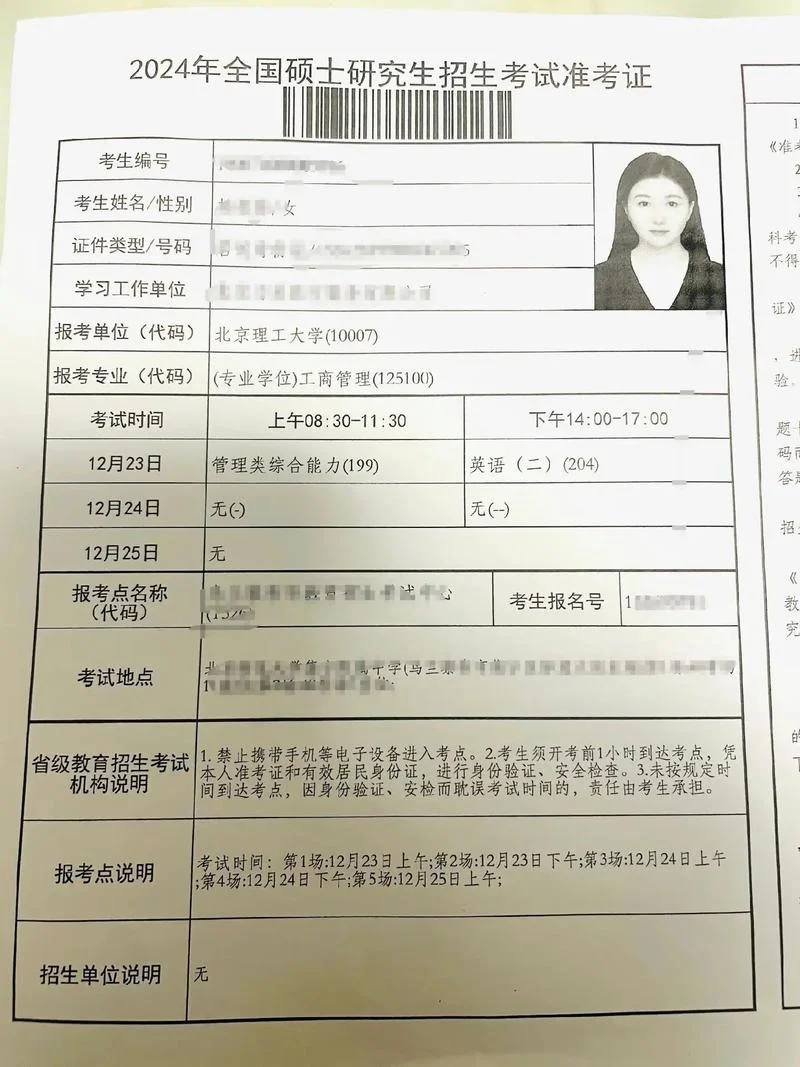 2024年全国硕士研究生招生考试准考证
考生编号
考生姓名/性别 /女
证件类型/号码 5
学习工作单位
报考单位（代码） 北京理工大学(10007)
报考专业（代码） (专业学位)工商管理(125100)
考试时间 上午08:30-11:30 下午14:00-17:00
12月23日 管理类综合能力(199) 英语（二）(204)
12月24日 无(-) 无(--)
12月25日 无
报考点名称
（代码）
考生报名号 1
考试地点
省级教育招生考试
机构说明
1. 禁止携带手机等电子设备进入考点。2.考生须开考前1小时到达考点，凭
本人准考证和有效居民身份证，进行身份验证、安全检查。3.未按规定时
间到达考点，因身份验证、安检而耽误考试时间的，责任由考生承担。
报考点说明
考试时间：第1场:12月23日上午;第2场:12月23日下午;第3场:12月24日上午
;第4场:12月24日下午;第5场:12月25日上午;
招生单位说明 无
1
《准考
2
科考
不得
证》
，进
验。
题卡
码而
答题
招生
《
教
究
的
下